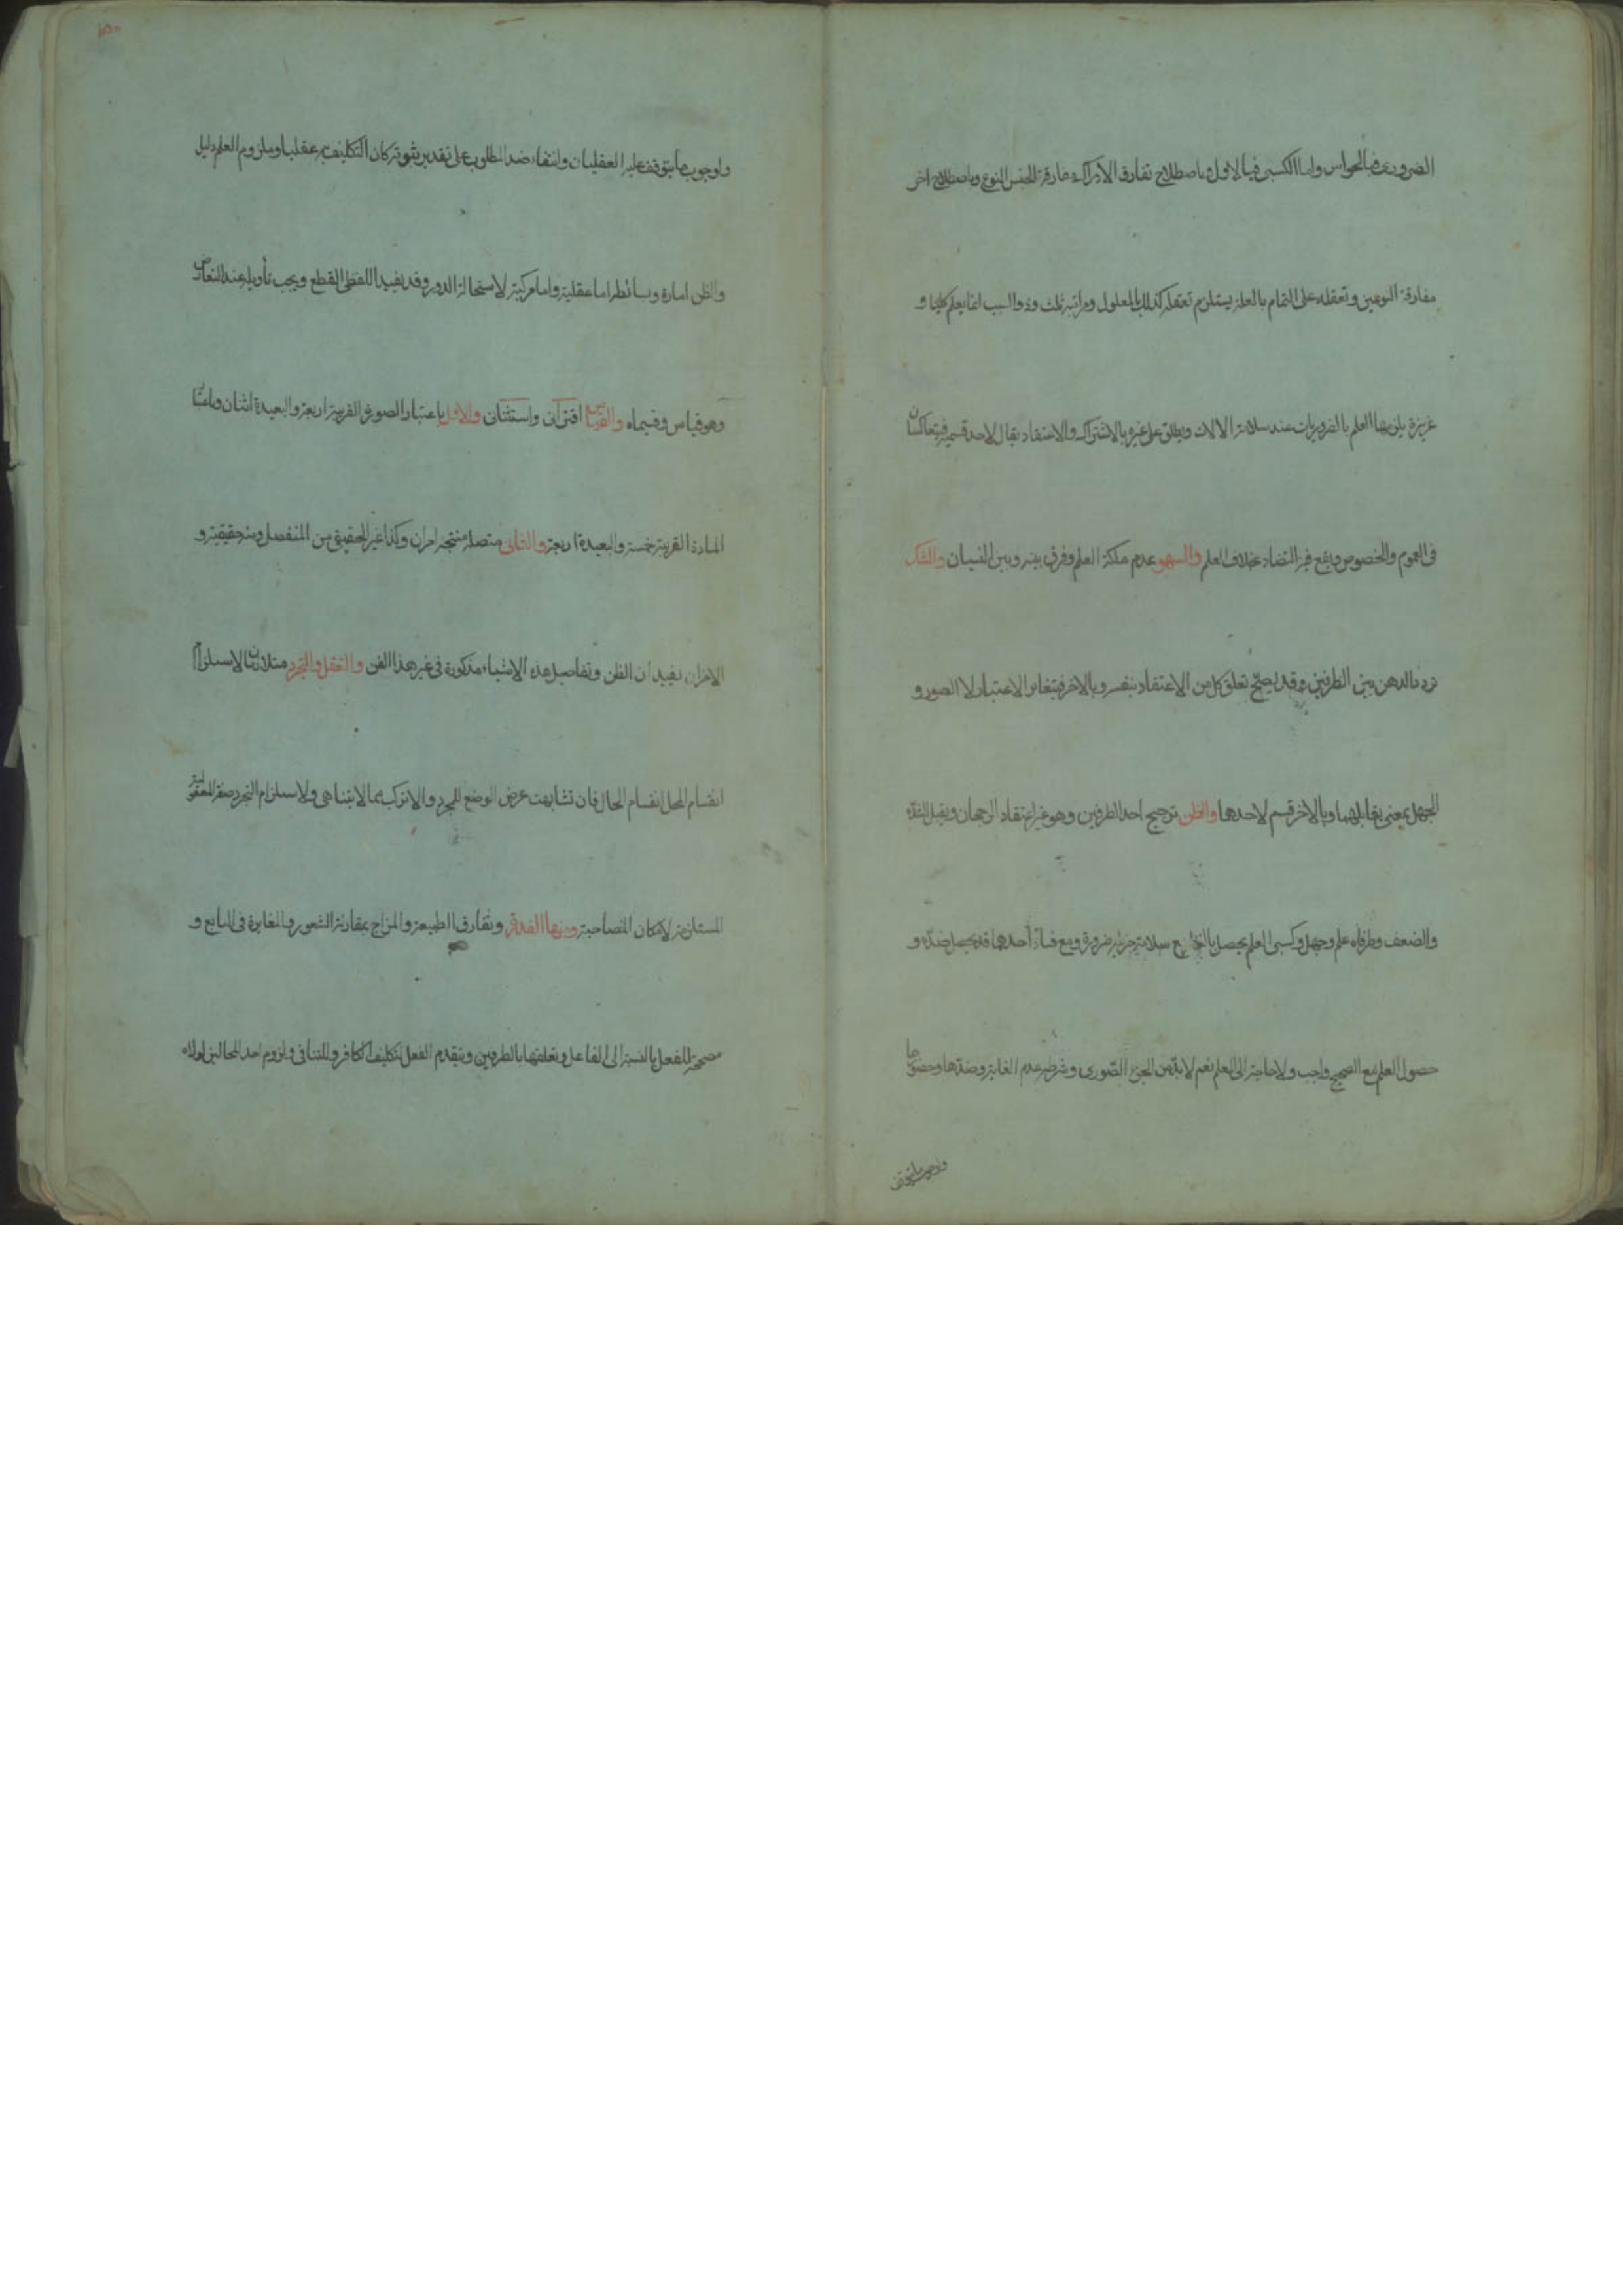 الضروری فبالحواس واما الکسبی فبالاول وباصطلاح تفارق الادراک مفارقة الجنس النوع وباصطلاح اخر
مفارقة النوعین وتعقله علی التمام بالعلة یستلزم تعقله کذلک بالمعلول ومراتبه ثلث وذو السبب انما یعلم کلیا و
غریزة یلزمها العلم بالضروریات عند سلامة الالات ویطلق علی غیره بالاشتراک والاعتقاد یقال لاحد قسمیه فیتعاکسان
فی العموم والخصوص ویقع فیه التضاد بخلاف العلم والسهو عدم ملکة العلم وفرق بینه وبین النسیان والشک
تردد الذهن بین الطرفین وقد یصح تعلق کل من الاعتقاد بنفسه وبالاخر فیتغایر الاعتبار لا الصور و
الجهل بمعنی یقابلهما وبالاخر قسم لاحدهما والظن ترجیح احد الطرفین وهو غیر اعتقاد الرجحان ویقبل الشدة
والضعف وطرفاه علم وجهل وکسبی العلم یحصل بالنظر مع سلامة جزئیه ضرورة ومع فساد احدهما قد یحصل ضده و
حصول العلم مع الصحیح واجب ولا حاجة الی المعلم نعم لابد من الجزء الصوری وشرطه عدم الغایة وضدها وحضورها
ولوجوب ما یتوقف علیه العقلیان وانتفاء ضد المطلوب علی تقدیر ثبوته کان التکلیف به عقلیا وملزوم العلم دلیل
والظن امارة وبسائطه اما عقلیة واما مرکبة لاستحالة الدور وقد یفید اللفظی القطع ویجب تأویله عند التعارض
وهو قیاس وقسیماه والقیاس اقترانی واستثنائی والاول باعتبار الصورة القریبة اربعة والبعیدة اثنان وباعتبار
المادة القریبة خمسة والبعیدة اربعة والثانی متصلة منتجه امران وکذا غیر الحقیقی من المنفصل ومنه حقیقیة و
الاخران یفیدان الظن وتفاصیل هذه الاشیاء مذکورة فی غیر هذا الفن والتعقل والتجرد متلازمان لاستلزام
انقسام المحل انقسام الحال فان تشابهت عرض الوضع للمجرد والا ترکب مما لا یتناهی ولاستلزام التجرد صحة المعقولیة
المستلزمة لامکان المصاحبة ومنها القدرة وتفارق الطبیعة والمزاج بمقارنة الشعور والمغایرة فی التابع و
مصححة للفعل بالنسبة الی الفاعل وتعلقها بالطرفین وتتقدم الفعل لتکلیف الکافر وللتنافی ولزوم احد المحالین لولاه